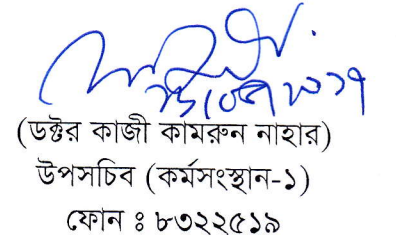 (ডক্টর কাজী কামরুন নাহার)
উপসচিব (কর্মসংস্থান-১)
ফোন ঃ ৮৩২২৫১৯